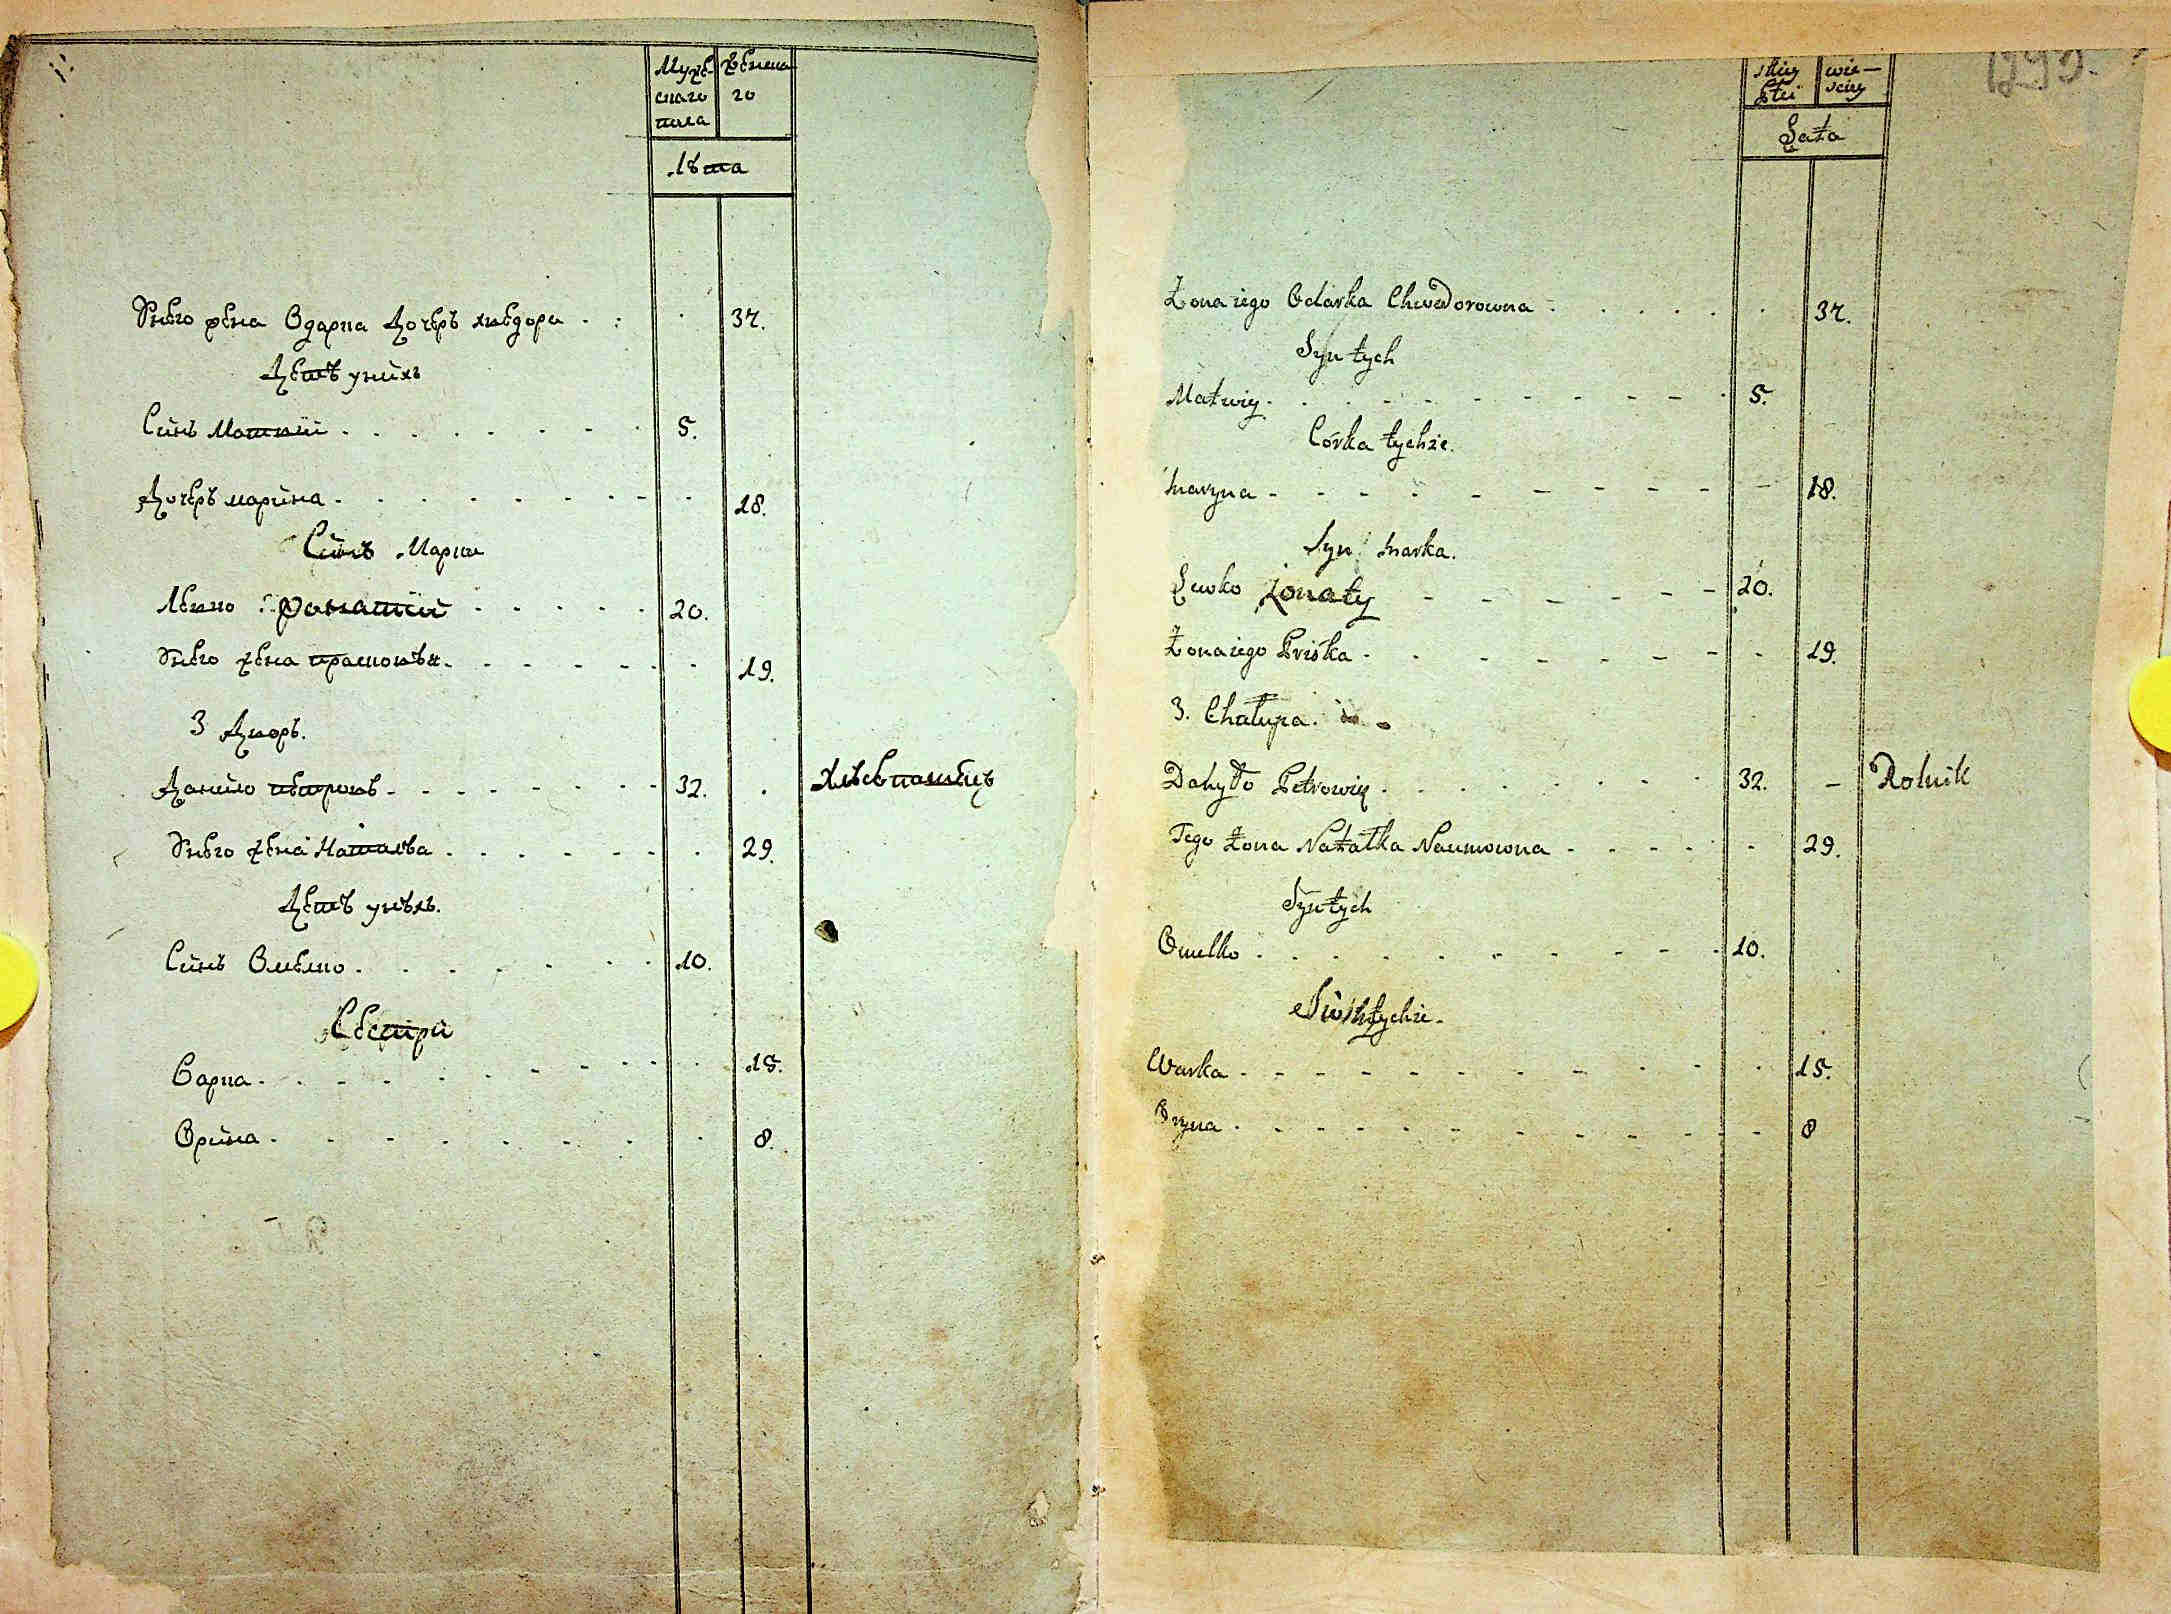 Мужеского пола
Женскаго
Лѣта
Унего жена Одарка Дочеръ хведора 37.
Детѣ унихъ
Синъ Матвий 5.
Дочеръ марина 18.
Синъ Марка
Левко жонатий 20.
Унего жена прасковѣя 19.
3 Дворъ.
Данило петровъ 32. Хлѣбопашецъ
Унего жена Наталка 29.
Детѣ унѣхъ.
Синъ Омелко 10.
Сестри
Варка 15.
Орина 8.
Męzkiey
Płci
wie-
sciey
Lata
Żona iego Odarka Chwedorowna 37.
Syn tych
Matwiy 5.
Córka tychże.
Maryna 18.
Syn Marka.
Lewko żonaty 20.
Żona iego Priśka 19.
3. Chałupa.
Danyło Petrowiy 32. - Rolnik
Tego żona Natałka Naumowna 29.
Syn tych
Omelko 10.
Siostry tychże.
Warka 15.
Oryna 8